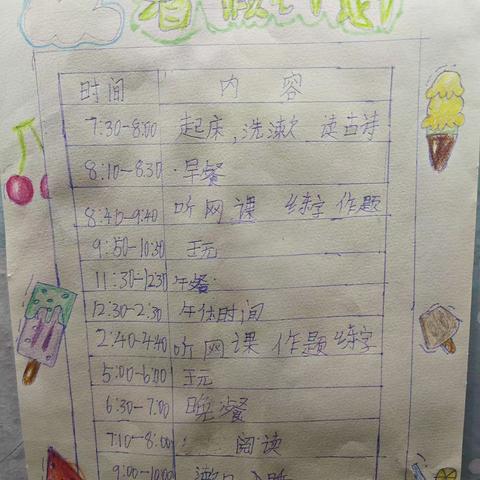 暑假计划
时间 内容
7:30-8:00 起床,洗漱 读古诗
8:10-8:30 早餐
8:40-9:40 听网课 练字 作题
9:50-10:30 玩
11:30-12:30 午餐
12:30-2:30 午休时间
2:40-4:40 听网课 作题 练字
5:00-6:00 玩
6:30-7:00 晚餐
7:10-8:00 阅读
9:00-10:00 漱口